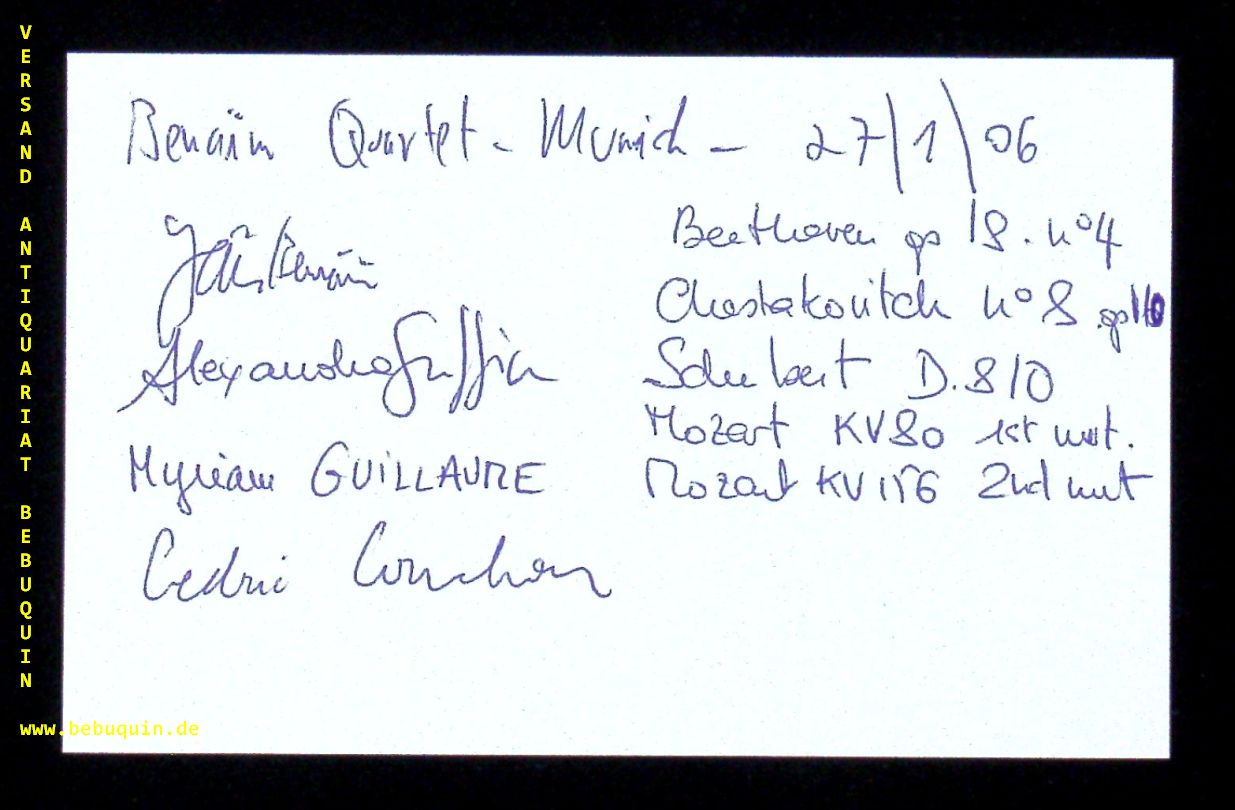 VERSAND ANTIQUARIAT BEBUQUIN
Benaïm Quartet - Munich - 27/1\06
Benaïm
Alexandra Griffin
Myriam GUILLAUME
Cedric Conchon
Beethoven op 18. n°4
Chostakovitch n°8 op 110
Schubert D.810
Mozart KV80 1st mvt.
Mozart KV156 2nd mvt
www.bebuquin.de